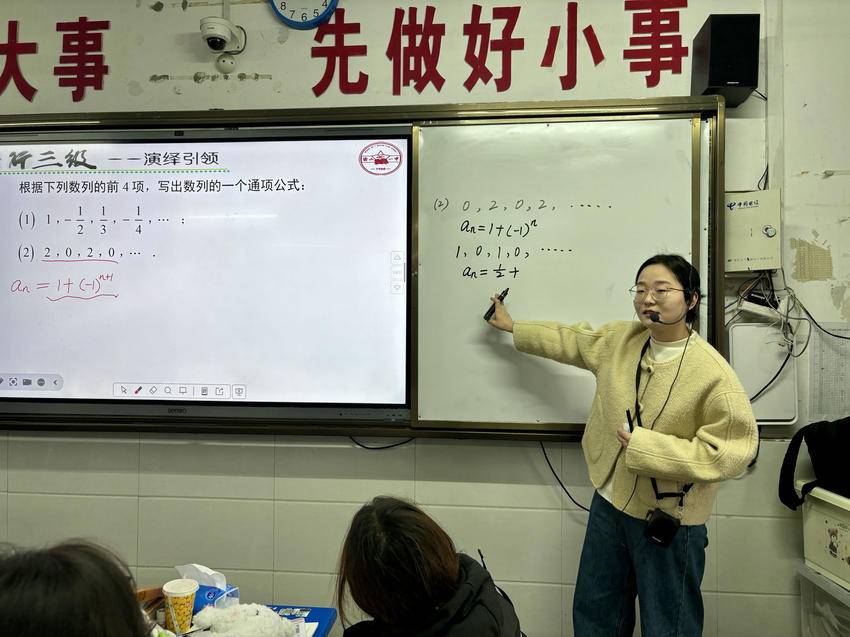 大事 先做好小事
三级 ——演绎引领
根据下列数列的前 4 项，写出数列的一个通项公式：
(1) 1, -1/2, 1/3, -1/4, … ；
(2) 2, 0, 2, 0, … .
aₙ = 1+(-1)ⁿ⁺¹
seewo
(2) 0, 2, 0, 2, ·····
aₙ=1+(-1)ⁿ
1, 0, 1, 0, ·····
aₙ=1/2+
中国电信